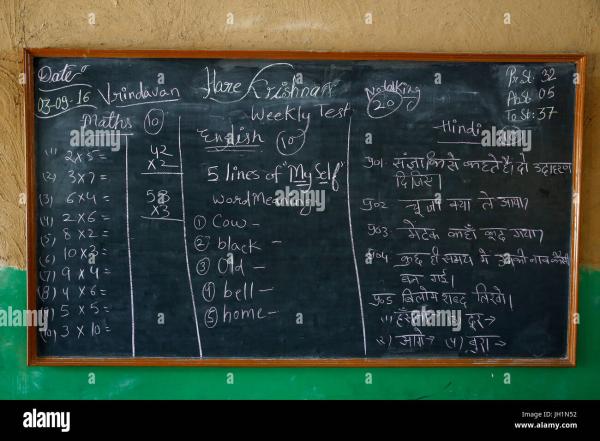 Date
03-09-16 Vrindavan
Hare Krishna
No talking
20
Pr.St. 32
Ab.St. 05
To.St. 37
Weekly Test
Maths 10
(1) 2 x 5 =
(2) 3 x 7 =
(3) 6 x 4 =
(4) 2 x 6 =
(5) 8 x 2 =
(6) 10 x 3 =
(7) 9 x 4 =
(8) 4 x 6 =
5 x 5 =
(10) 3 x 10 =
42
x 2
58
x 3
English 10
5 lines of "My Self"
Word Meaning
① Cow -
② black -
③ Old -
④ bell -
⑤ home -
Hindi
प्र01. संज्ञा किसे कहते हैं। दो उदाहरण
दिजिए।
प्र02 चूजा क्या ले आया।
प्र03. मेंढक कहाँ कूद गया।
प्र04 कुछ ही समय में उनकी नाव कैसी
बन गई।
प्र05 विलोम शब्द लिखो।
दूर →
आगे → बुरा →
alamy stock photo
JH1N52
www.alamy.com